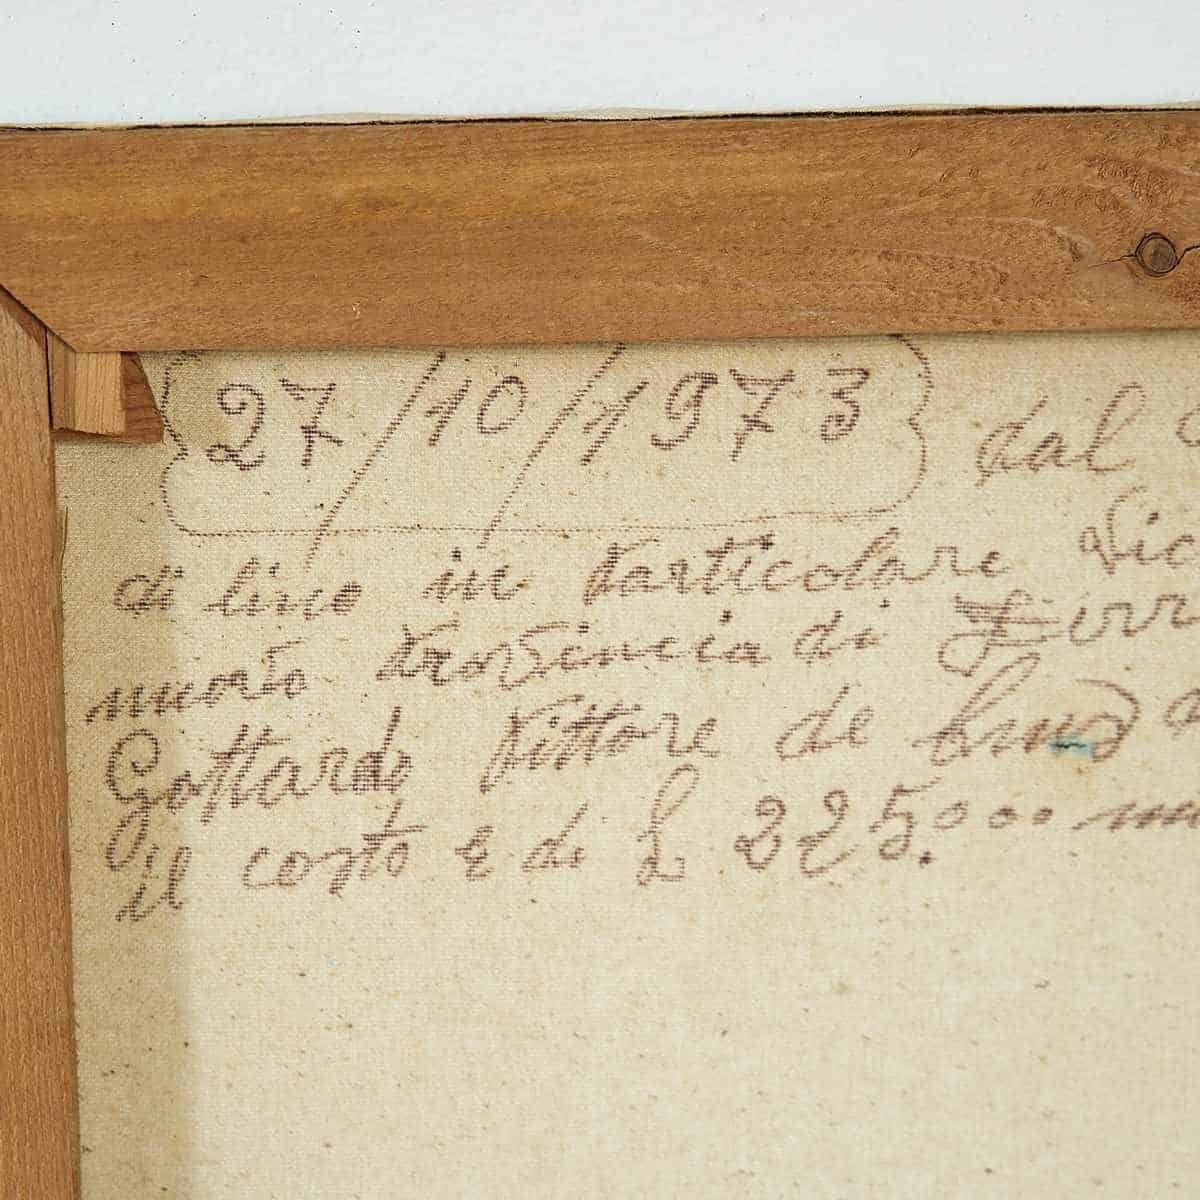 27/10/1973 dal
di lino in particolare
murto provincia di
Gottardo Pittore de
il costo è di L 225.000